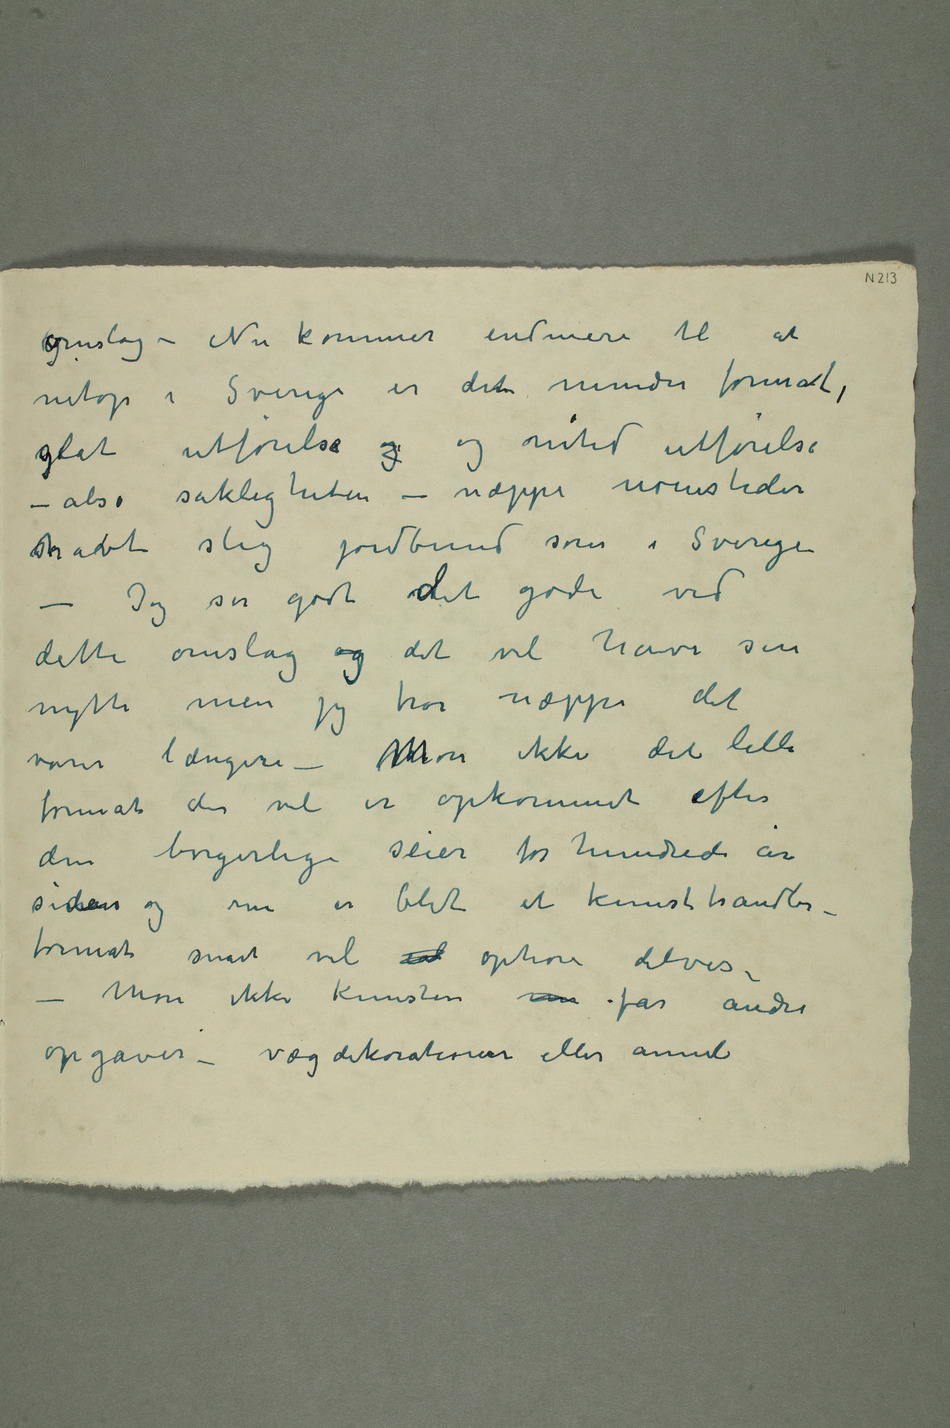 N 213
omslag – Nu kommer endmere til at
netop i Sverige er det mindre format,
glat utførelse og og nitid utførelse
– also sakligheten – næppe noensteder
hadt slig jordbund som i Sverige
– Jeg ser godt det gode ved
dette omslag og det vil have sin
nytte men jeg tror næppe det
varer længere – Mon ikke det lille
format der vel er opkommet efter
den borgerlige seier for hundrede år
siden og nu er blet et kunsthandler-
format snart vil ophøre delvis –
– Mon ikke kunsten nu får andre
opgaver – vægdekorationer eller annet